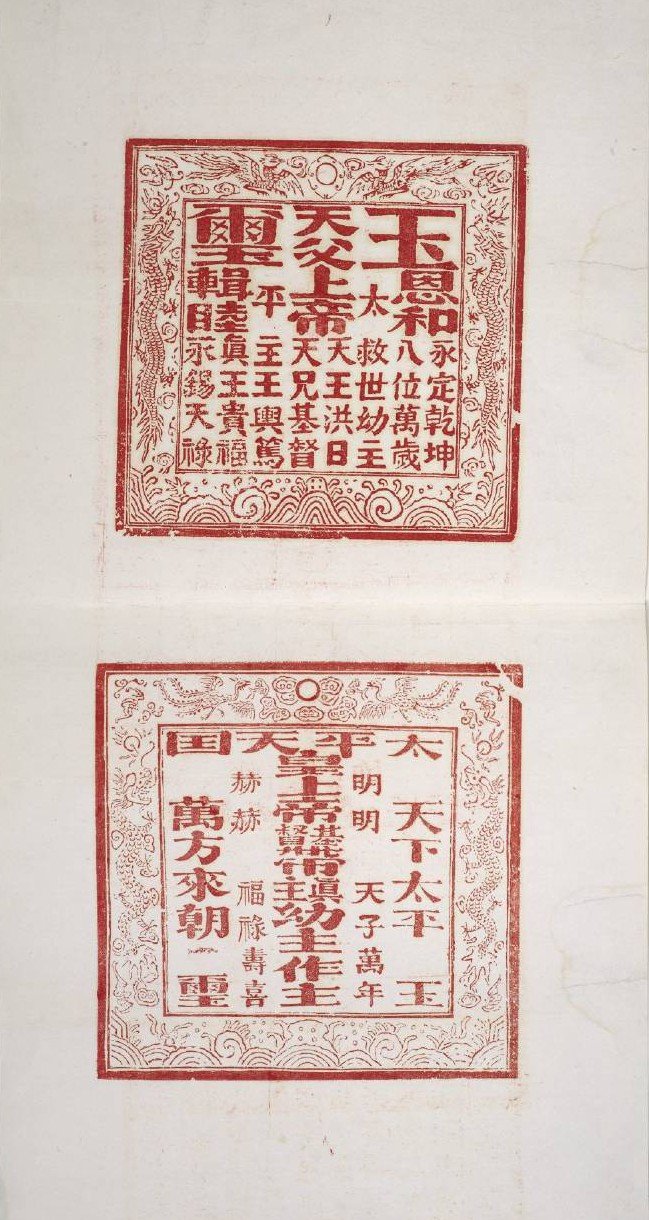 玉
天父上帝
璽
恩和
太
平
輯睦
永定乾坤
八位萬歲
救世幼主
天王洪日
天兄基督
主王輿篤
眞王貴福
永錫天祿
太平天囯
天下太平 玉
明明 天子萬年
皇上帝基督帶眞主幼主作主
赫赫 福祿壽喜
萬方來朝 璽